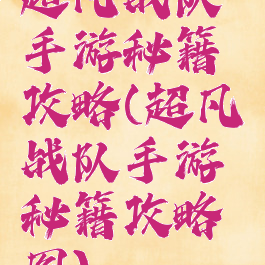 超凡战队
手游秘籍
攻略(超凡
战队手游
秘籍攻略
图)